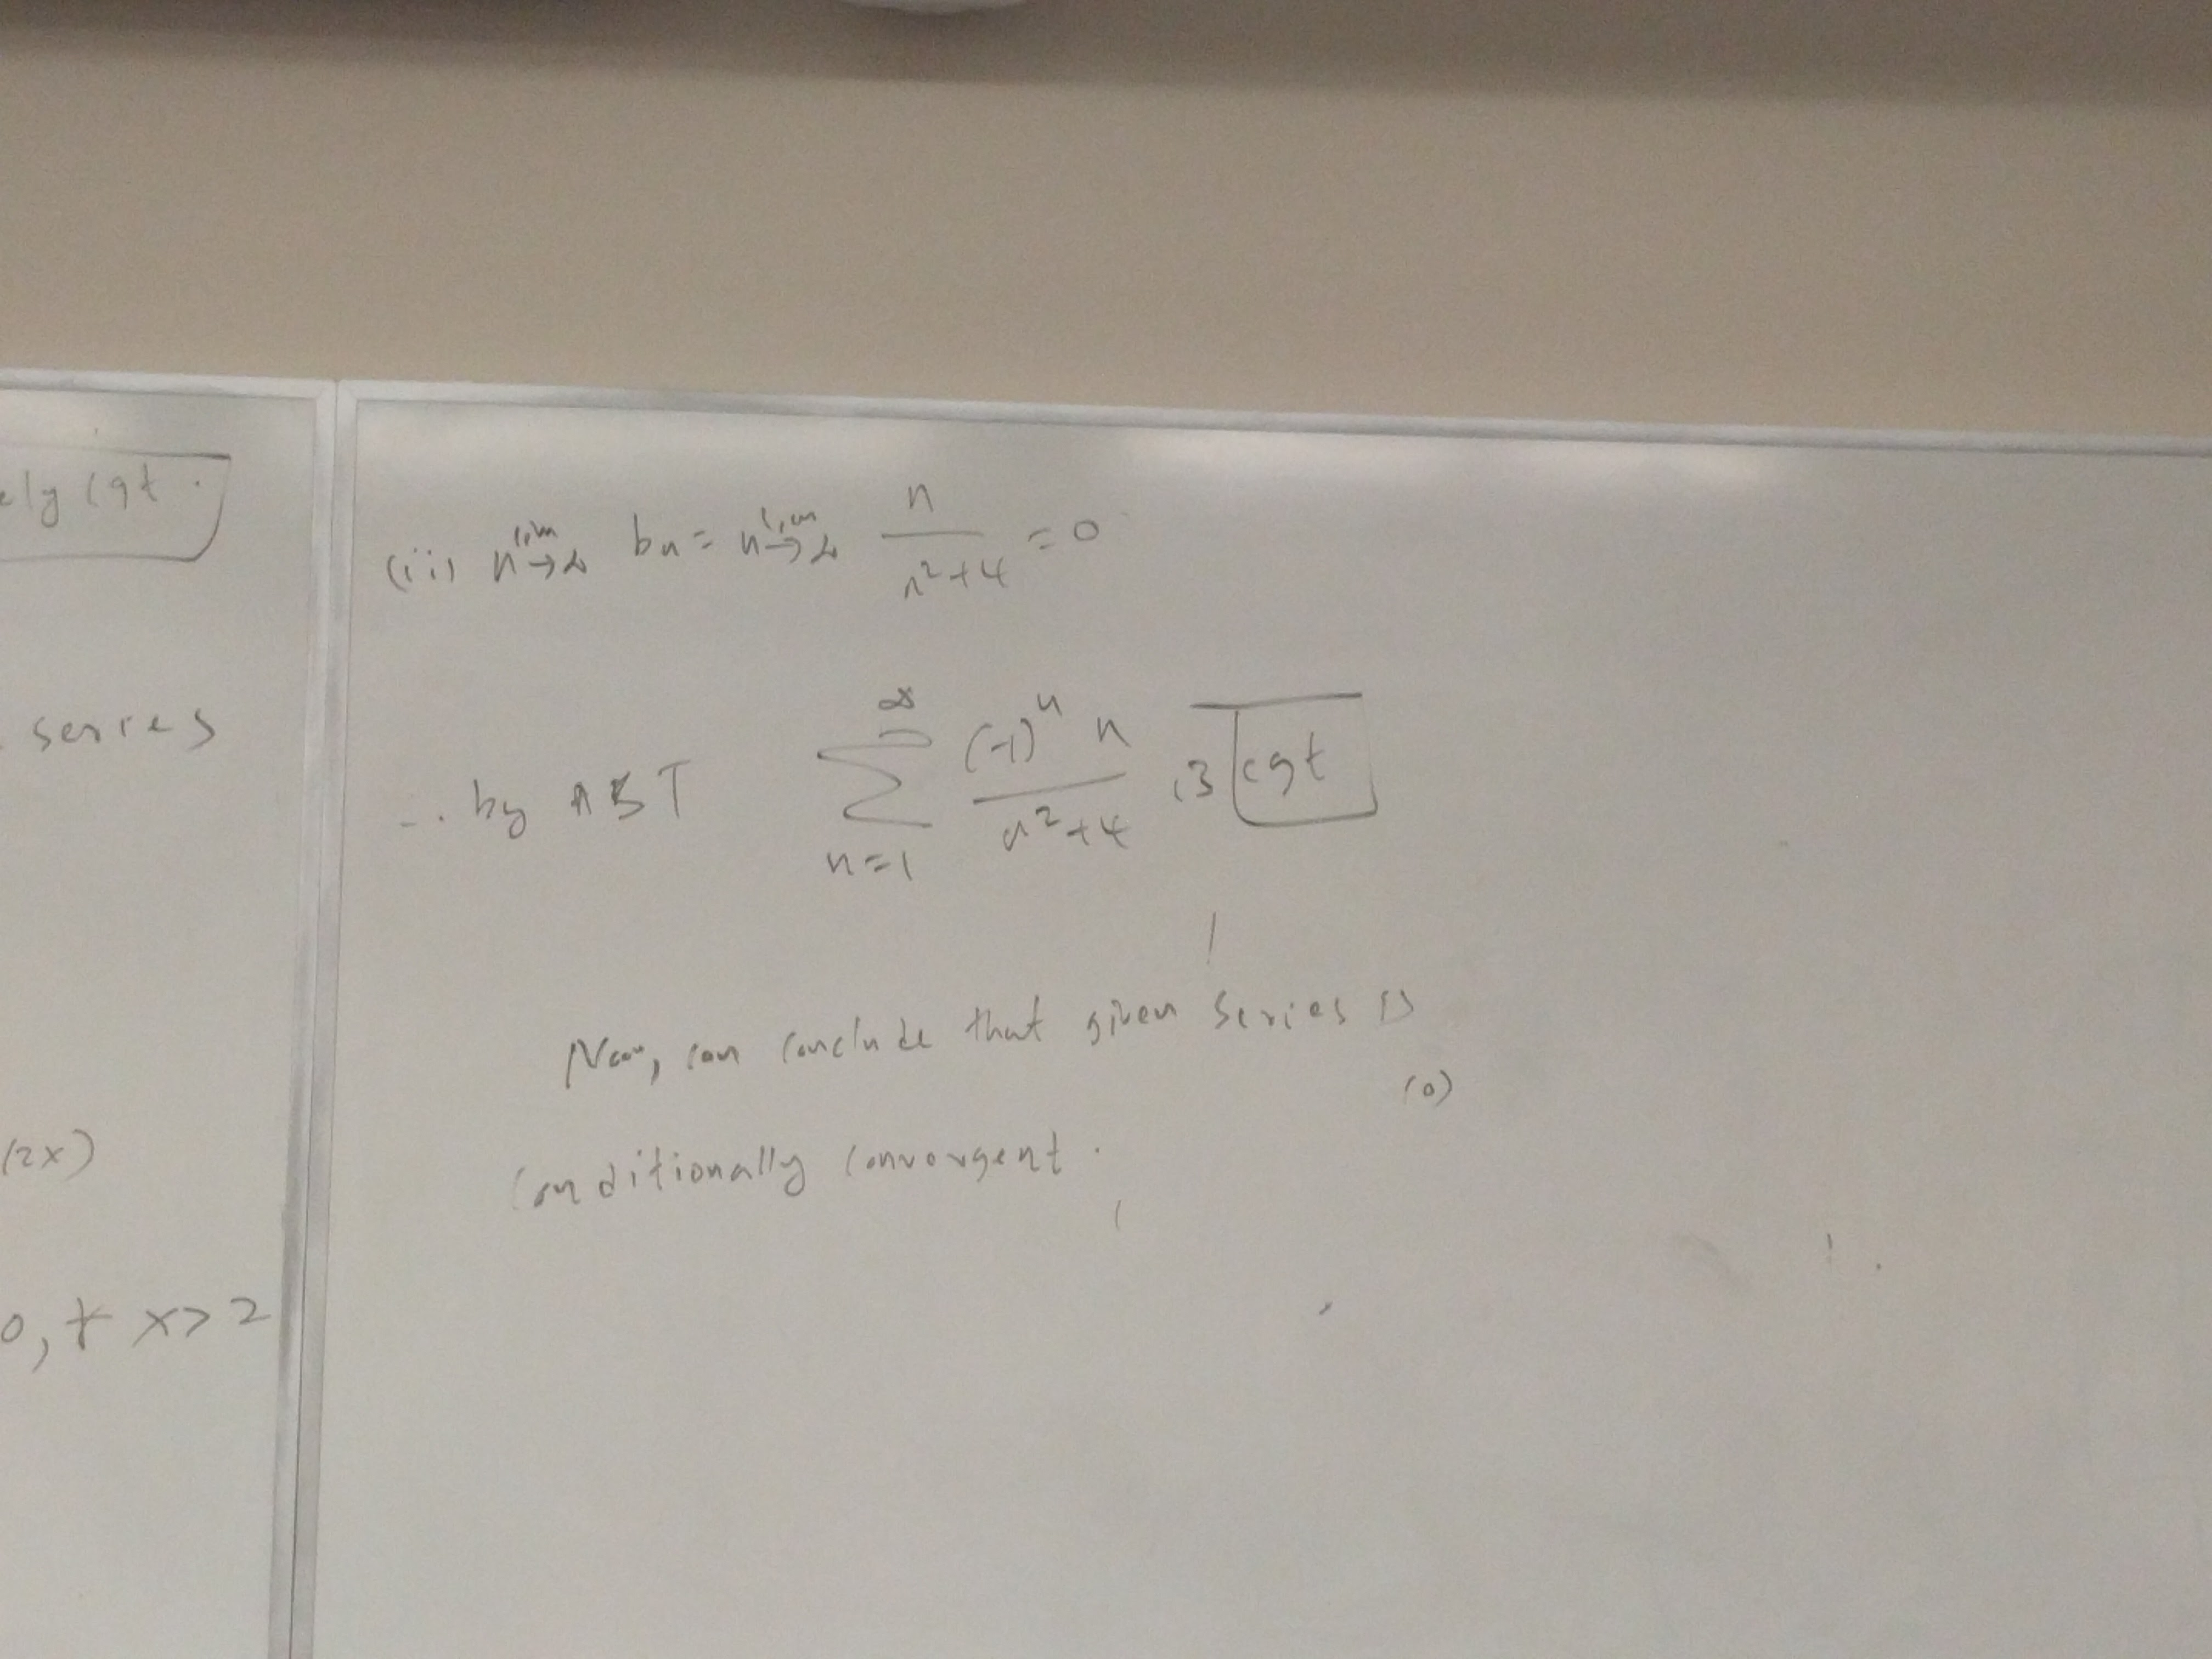 ely cgt.
series
(2x)
0, ∀ x > 2
(ii) lim n→∞ bn = lim n→∞ n / n²+4 = 0
∴ by AST ∞ Σ n=1 (-1)ⁿ n / n²+4 is cgt
Now, can conclude that given series is
(0)
conditionally convergent.